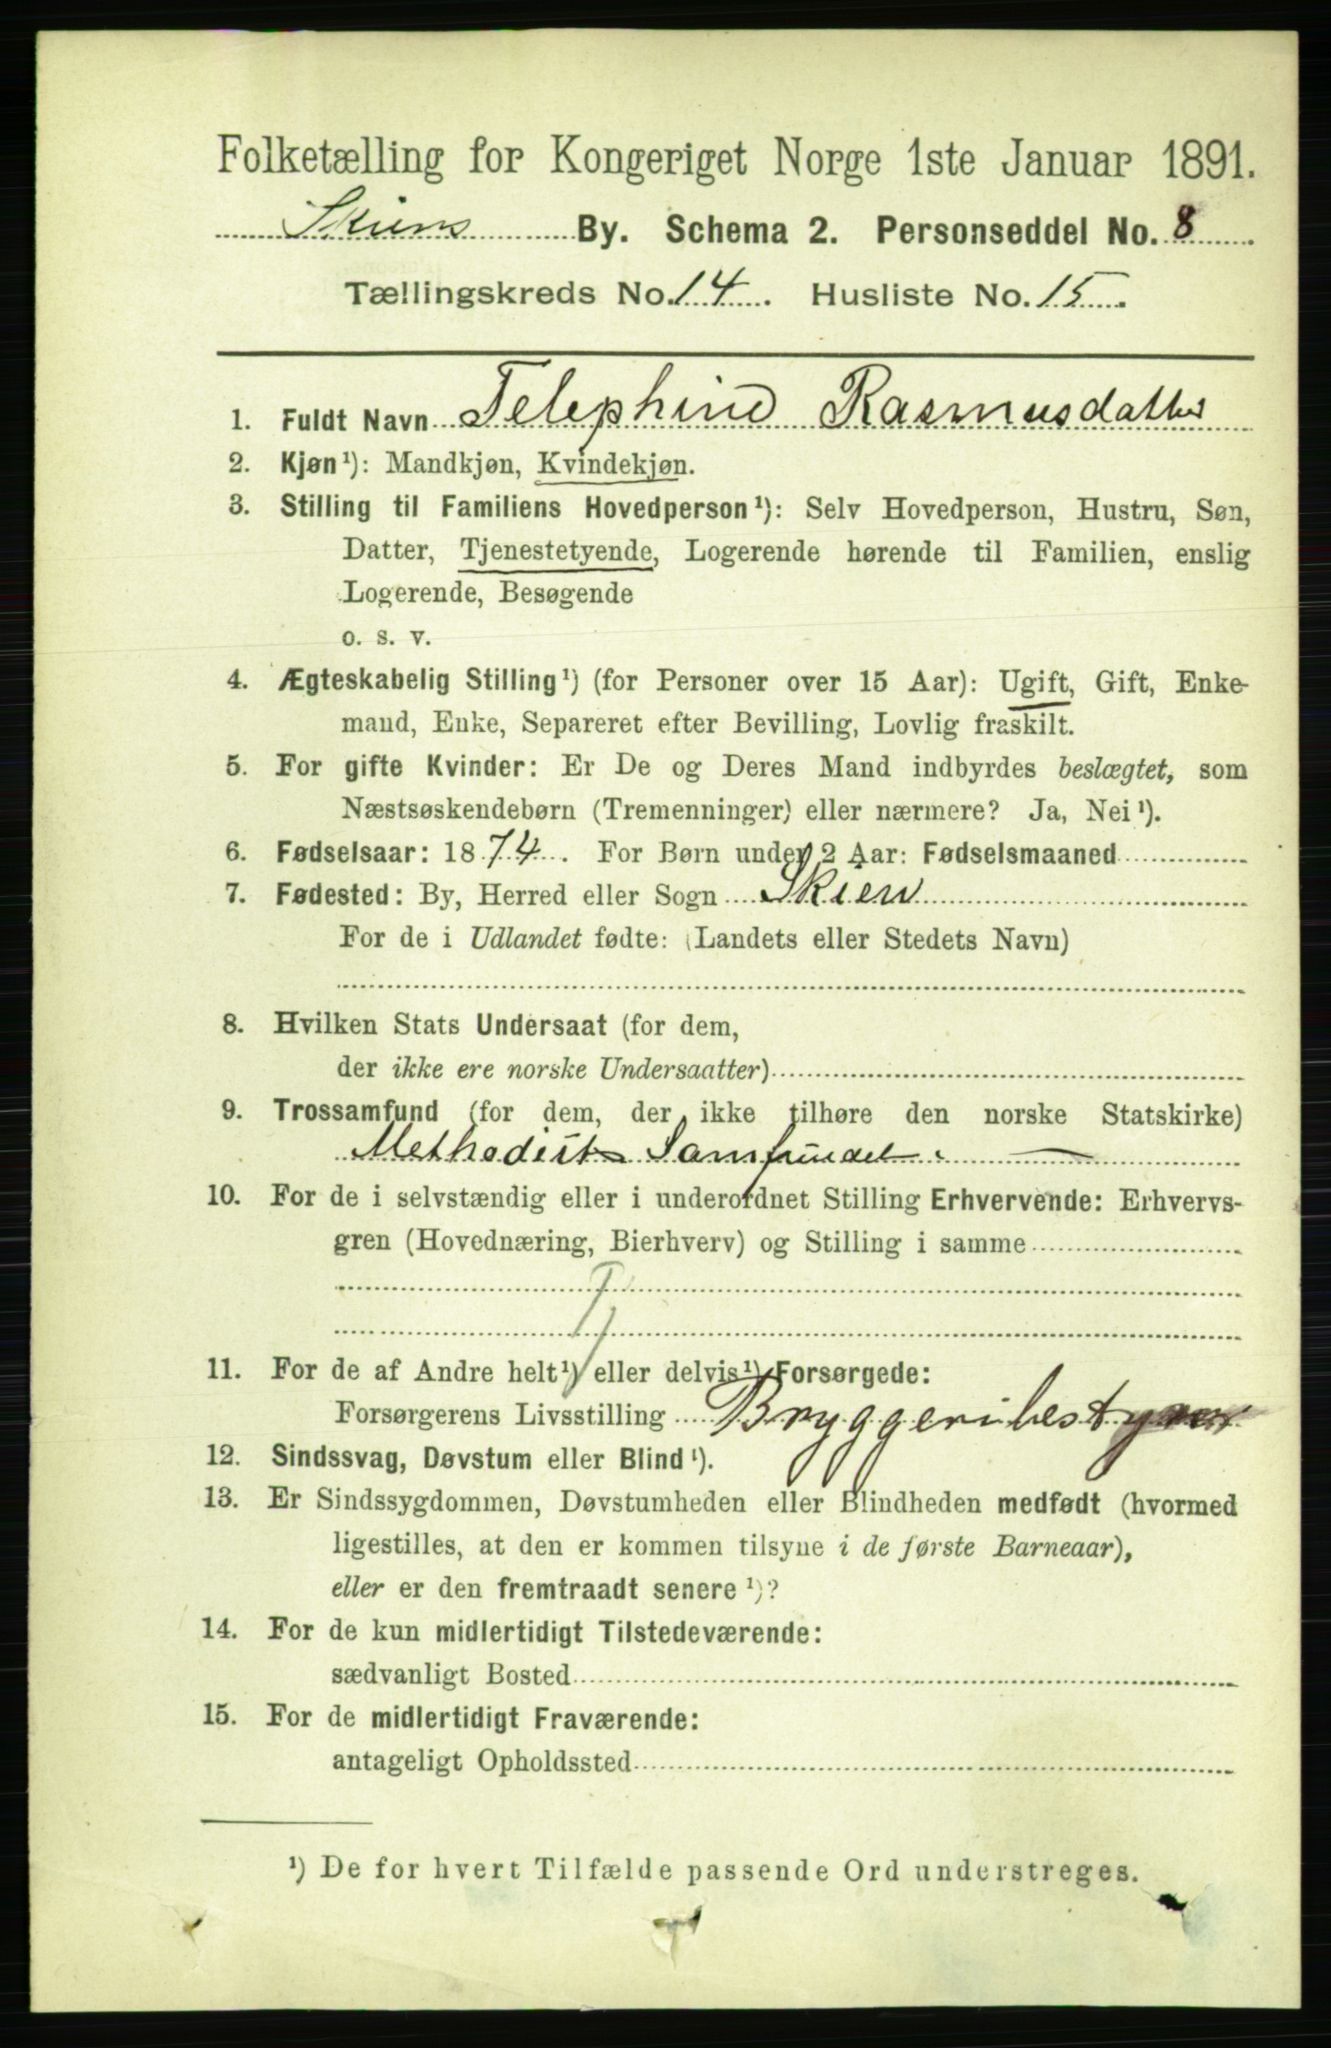 Folketælling for Kongeriget Norge 1ste Januar 1891.
Skiens By. Schema 2. Personseddel No. 8
Tællingskreds No. 14. Husliste No. 15.
1. Fuldt Navn Telephine Rasmusdatter
2. Kjøn¹): Mandkjøn, Kvindekjøn.
3. Stilling til Familiens Hovedperson¹): Selv Hovedperson, Hustru, Søn,
Datter, Tjenestetyende, Logerende hørende til Familien, enslig
Logerende, Besøgende
o. s. v.
4. Ægteskabelig Stilling¹) (for Personer over 15 Aar): Ugift, Gift, Enke-
mand, Enke, Separeret efter Bevilling, Lovlig fraskilt.
5. For gifte Kvinder: Er De og Deres Mand indbyrdes beslægtet, som
Næstsøskendebørn (Tremenninger) eller nærmere? Ja, Nei¹).
6. Fødselsaar: 1874. For Børn under 2 Aar: Fødselsmaaned
7. Fødested: By, Herred eller Sogn Skien
For de i Udlandet fødte: (Landets eller Stedets Navn)
8. Hvilken Stats Undersaat (for dem,
der ikke ere norske Undersaatter)
9. Trossamfund (for dem, der ikke tilhøre den norske Statskirke)
Methodist Samfundet.
10. For de i selvstændig eller i underordnet Stilling Erhvervende: Erhvervs-
gren (Hovednæring, Bierhverv) og Stilling i samme
T
11. For de af Andre helt¹) eller delvis¹) Forsørgede:
Forsørgerens Livsstilling Bryggeribestyrer
12. Sindssvag, Døvstum eller Blind¹).
13. Er Sindssygdommen, Døvstumheden eller Blindheden medfødt (hvormed
ligestilles, at den er kommen tilsyne i de første Barneaar),
eller er den fremtraadt senere¹)?
14. For de kun midlertidigt Tilstedeværende:
sædvanligt Bosted
15. For de midlertidigt Fraværende:
antageligt Opholdssted
¹) De for hvert Tilfælde passende Ord understreges.